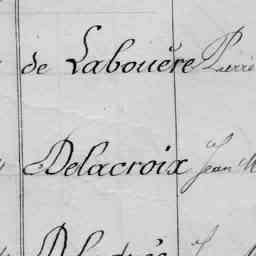 de Labouëre Pierre
Delacroix Jean M